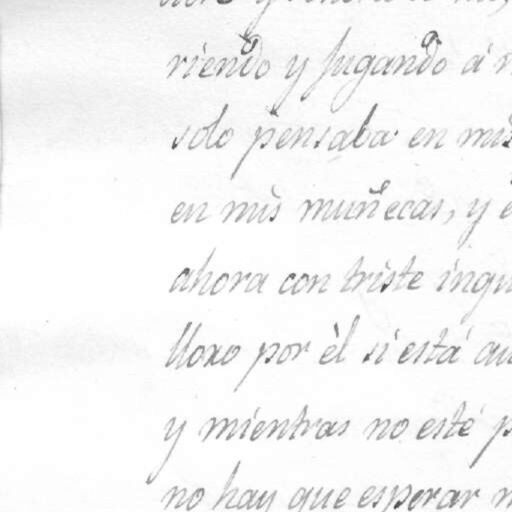 riendo y jugando á
solo pensaba en mis
en mis muñecas, y
ahora con triste inqu
lloro por èl si está au
y mientras no esté p
no hay que esperar